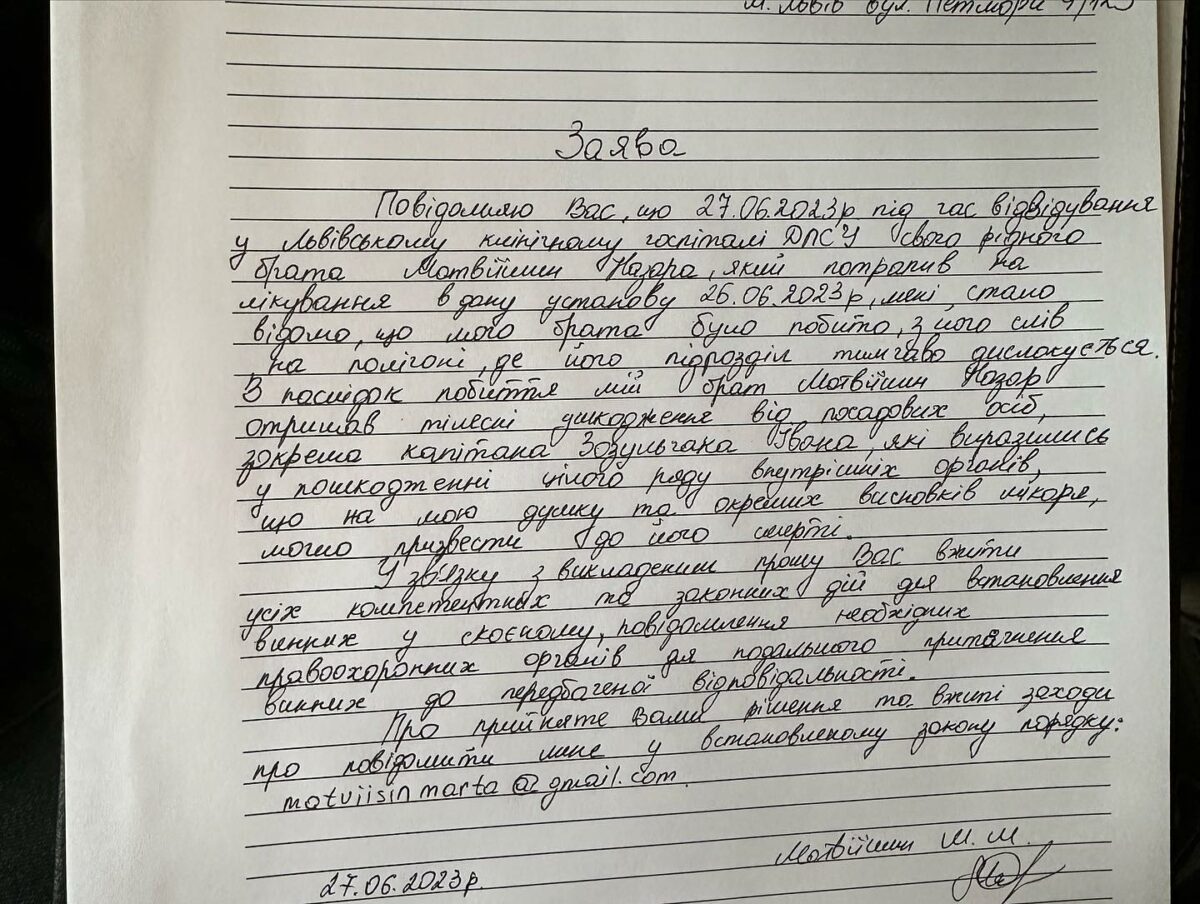 м. Львів вул. Петлюри
Заява
Повідомляю Вас, що 27.06.2023р під час відвідування
у Львівському клінічному госпіталі ДПСУ свого рідного
брата Матвіїшин Назара, який потрапив на
лікування в дану установу 26.06.2023р, мені стало
відомо, що мого брата було побито, з його слів
на полігоні, де його підрозділ тимчаво дислокується.
В послідок побиття мій брат Матвіїшин Назар
отримав тілесні ушкодження від посадових осіб,
зокрема капітана Зозульчака Івана, які виразились
у пошкодженні цілого ряду внутрішніх органів,
що на мою думку та окремих висновків лікаря,
могло призвести до його смерті.
У зв'язку з викладеним прошу Вас вжити
усіх компетентних та законних дій для встановлення
винних у скоєному, повідомлення необхідних
правоохоронних органів для подального притягнення
винних до передбаченої відповідальності.
Про прийняте Вами рішення та вжиті заходи
про повідомити мене у встановленому закону порядку:
matviisinmarta@gmail.com
Матвіїшин М. М.
27.06.2023р.